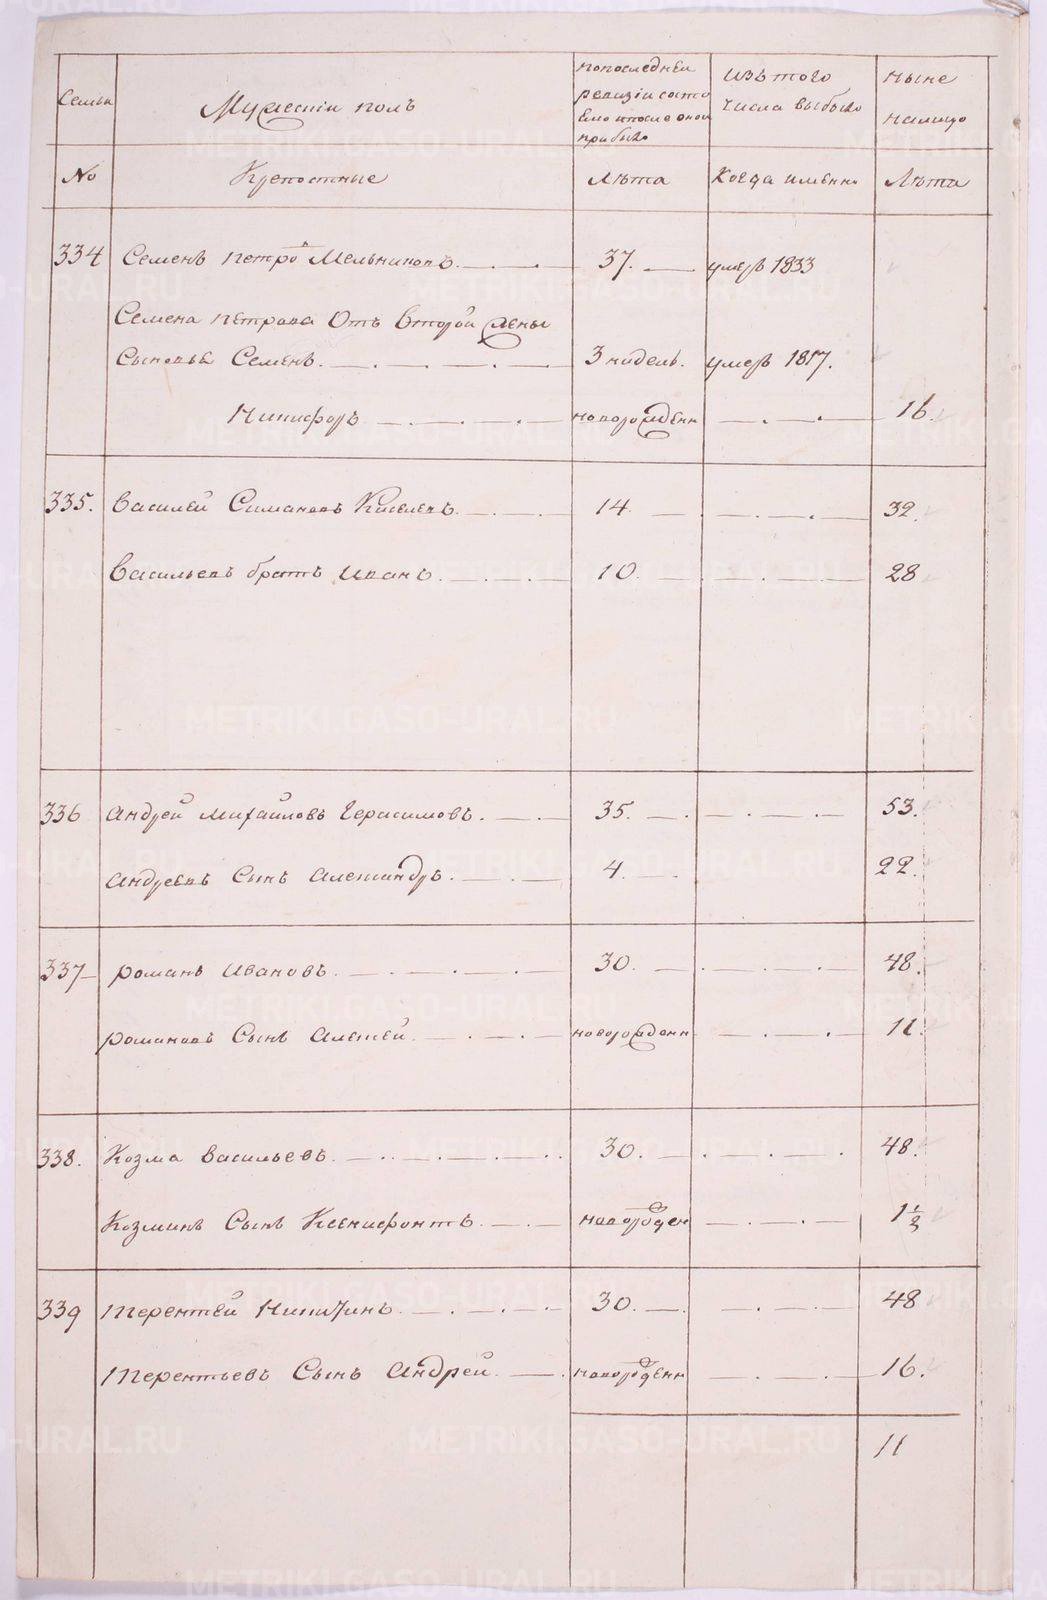 Семьи
Мужескій полъ
попоследней
ревизіи состо
яло ипосле оной
прибыло
изъ того
числа выбыло
ныне
налицо
No
Крепостные
Лѣта
Когда именно
Лѣта
334 Семенъ петровъ Мельниковъ. 37. умеръ 1833
Семена петрова Отъ Второй жены
Сыновья Семенъ. 3 нидель. умеръ 1817.
Никифоръ новорожденн 16.
335. Василей Симановъ Киселевъ. 14 32.
Васильевъ братъ Иванъ. 10. 28
336 Андрей Михайловъ Герасимовъ. 35. 53.
Андреевъ Сынъ Александръ. 4. 22.
337 Романъ Ивановъ. 30. 48.
Романовъ Сынъ Алексей новорожденн 11.
338. Козма Васильевъ. 30. 48.
Козминъ Сынъ Ксенифонтъ новорожден 1 1/2
339 Терентей Никитинъ. 30. 48
Терентьевъ Сынъ Андрей новорожденн 16.
11
METRIKI.GASO-URAL.RU